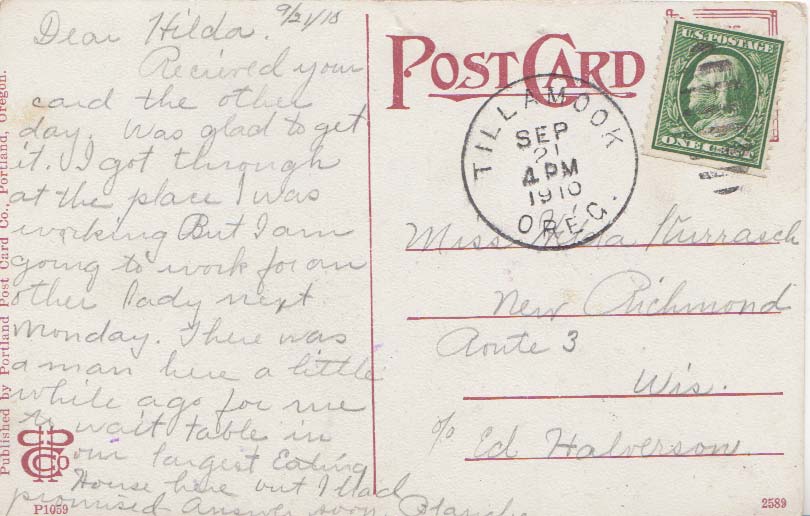 Dear Hilda. 9/21/10
Recieved your
card the other
day. Was glad to get
it. I got through
at the place I was
working But I am
going to work for an
other lady next
Monday. There was
a man here a little
while ago for me
to wait table in
our largest Eating
House here but I had
promised Answer soon.
Published by Portland Post Card Co., Portland, Oregon.
P1059
POST CARD
TILLAMOOK
SEP
21
4 PM
1910
OREG.
U.S. POSTAGE
ONE CENT
Miss Hilda
New Richmond
Route 3
Wis.
c/o Ed Halverson
2589